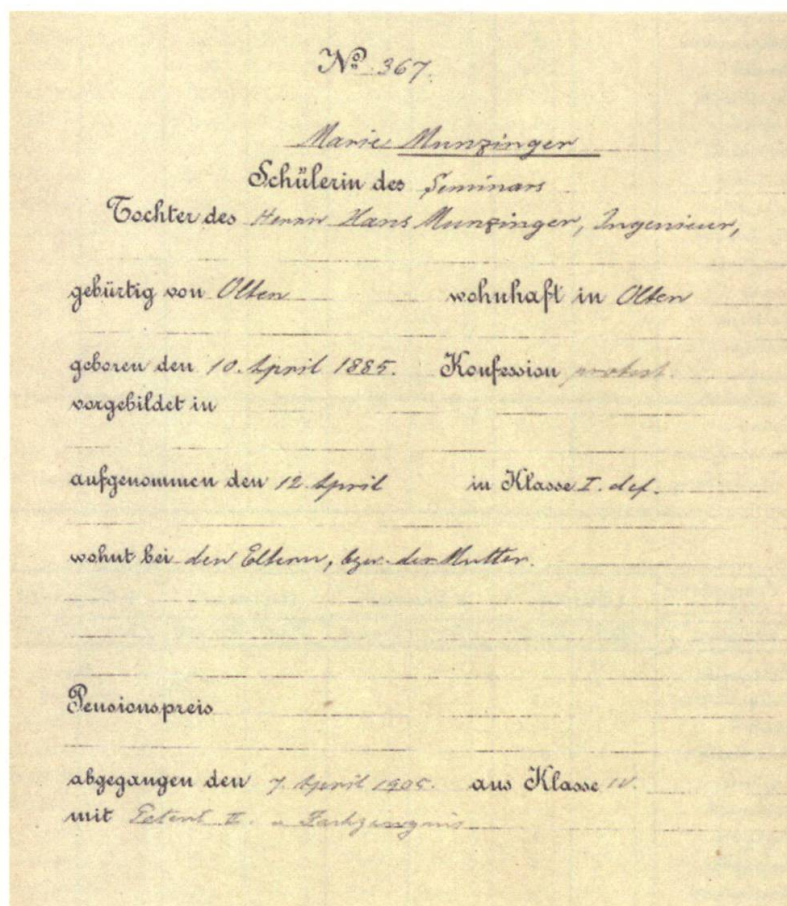 No 367.
Marie Munzinger
Schülerin des Seminars
Tochter des Herrn Hans Munzinger, Ingenieur,
gebürtig von Olten wohnhaft in Olten
geboren den 10. April 1885. Konfession protest.
vorgebildet in
aufgenommen den 12. April in Klasse I. def.
wohnt bei den Eltern, bzw. der Mutter.
Pensionspreis
abgegangen den 7. April 1905. aus Klasse IV.
mit Patent II. u. Fachzeugnis